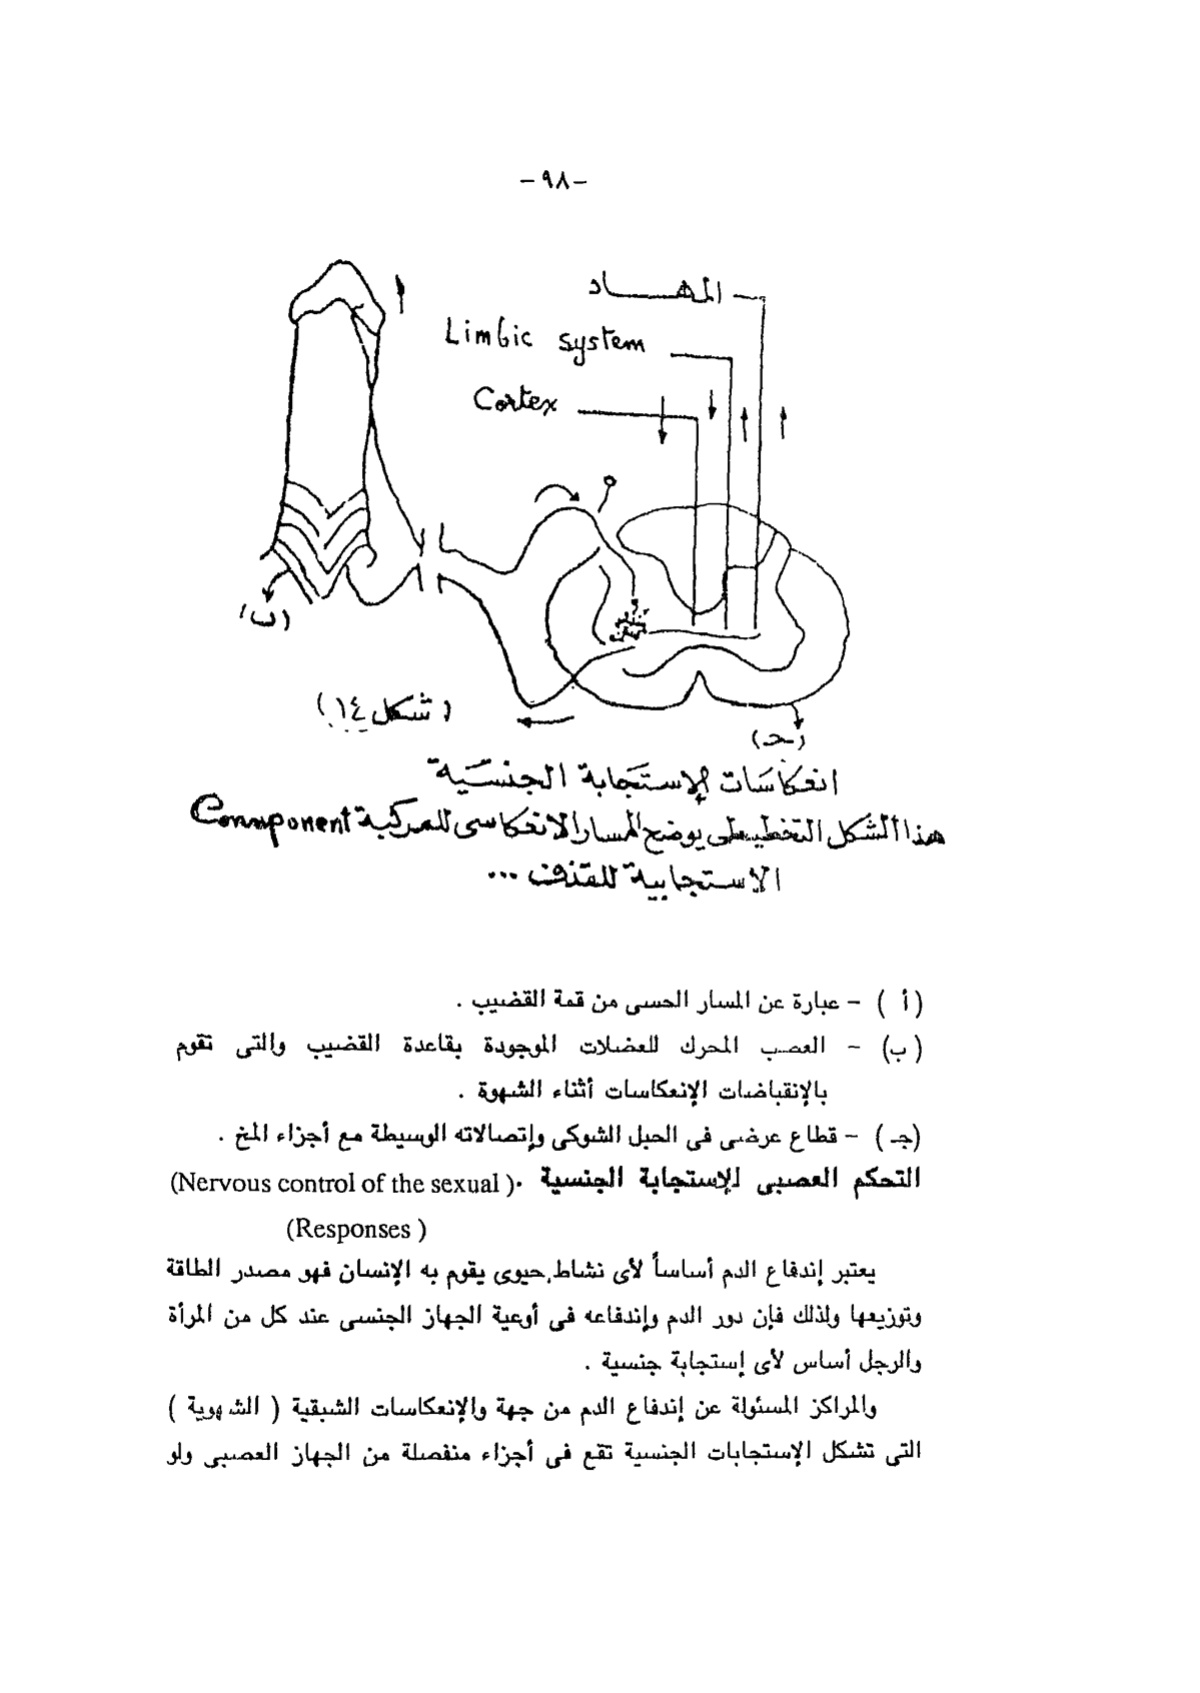 -٩٨-
المهـــاد
Limbic system
Cortex
(ب)
(شكل ١٤)
(جـ)
انعكاسات الإستجابة الجنسية
هذا الشكل التخطيطى يوضح المسار الانعكاسى للمركبة Connponent
الإستجابية للقذف ...
(أ ) - عبارة عن المسار الحسى من قمة القضيب .
(ب) - العصب المحرك للعضلات الموجودة بقاعدة القضيب والتى تقوم
بالإنقباضات الإنعكاسات أثناء الشهوة .
(جـ ) - قطاع عرضى فى الحبل الشوكى وإتصالاته الوسيطة مع أجزاء المخ .
التحكم العصبى للإستجابة الجنسية .( Nervous control of the sexual)
(Responses )
يعتبر إندفاع الدم أساساً لأى نشاط حيوى يقوم به الإنسان فهو مصدر الطاقة
وتوزيعها ولذلك فإن دور الدم وإندفاعه فى أوعية الجهاز الجنسى عند كل من المرأة
والرجل أساس لأى إستجابة جنسية .
والمراكز المسئولة عن إندفاع الدم من جهة والإنعكاسات الشبقية ( الشهوية )
التى تشكل الإستجابات الجنسية تقع فى أجزاء منفصلة من الجهاز العصبى ولو